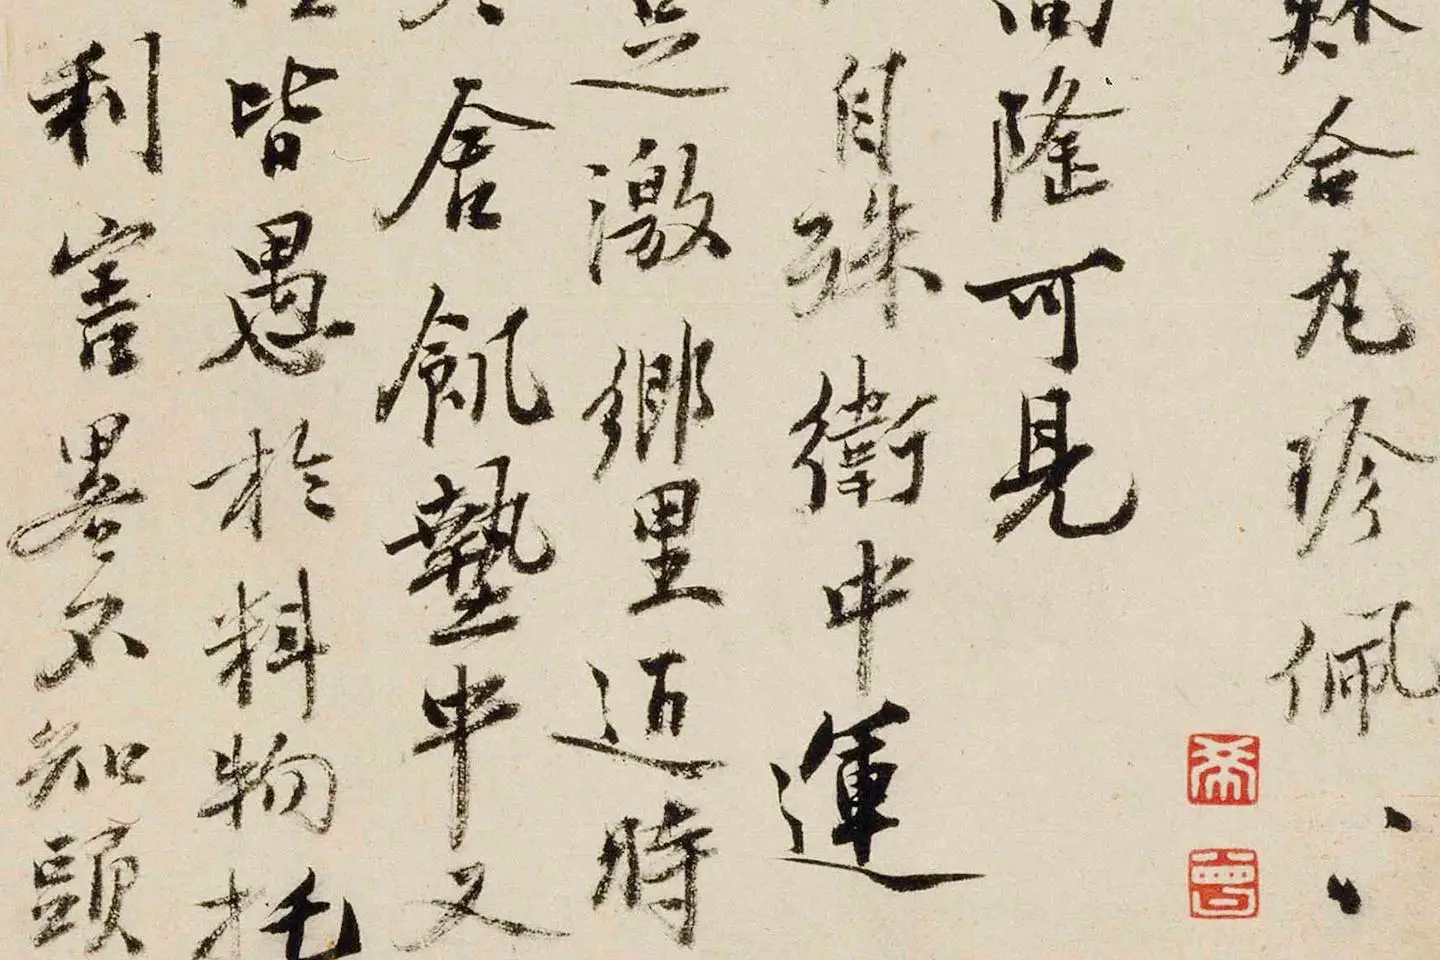 合丸珍佩、、
隆可見
自珠衛中運
足激鄉里迺時
舍飢墊中又
皆愚於料物托
利害畧不知頭